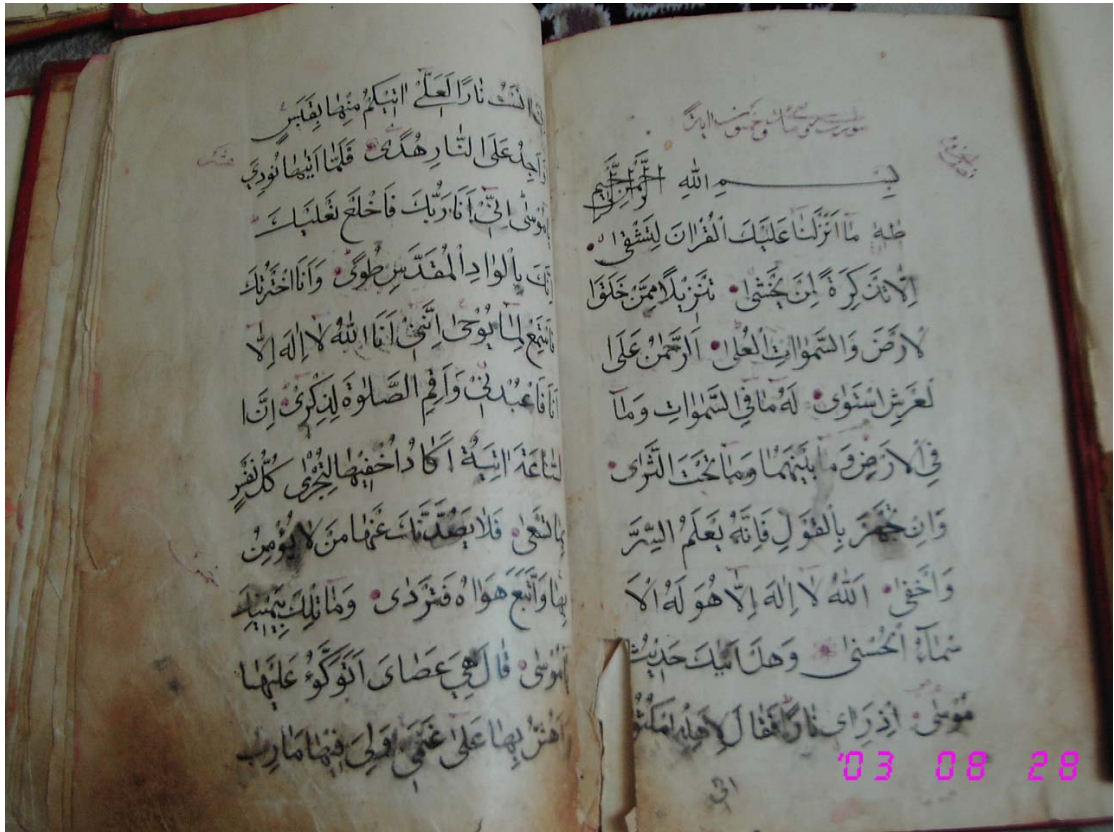 بسم الله الرحمن الرحيم
طه مَا اَنْزَلْنَا عَلَيْكَ الْقُرْاٰنَ لِتَشْقٰى
اِلَّا تَذْكِرَةً لِمَنْ يَخْشٰى تَنْزِيلًا مِمَّنْ خَلَقَ ا
لْاَرْضَ وَالسَّمٰوَاتِ الْعُلٰى اَلرَّحْمٰنُ عَلَى ا
لْعَرْشِ اسْتَوٰى لَهُ مَا فِي السَّمٰوَاتِ وَمَا
فِي الْاَرْضِ وَمَا بَيْنَهُمَا وَمَا تَحْتَ الثَّرٰى
وَاِنْ تَجْهَرْ بِالْقَوْلِ فَاِنَّهُ يَعْلَمُ السِّرَّ
وَاَخْفٰى اَللهُ لَا اِلٰهَ اِلَّا هُوَ لَهُ الْاَ
سْمَاءُ الْحُسْنٰى وَهَلْ اَتٰيكَ حَدِيثُ
مُوسٰى اِذْ رَاٰى نَارًا فَقَالَ لِاَهْلِهِ امْكُثُوا
اِنِّي اٰنَسْتُ نَارًا لَعَلِّي اٰتِيكُمْ مِنْهَا بِقَبَسٍ
اَوْ اَجِدُ عَلَى النَّارِ هُدًى فَلَمَّا اَتٰيهَا نُودِيَ
يَا مُوسٰى اِنِّي اَنَا رَبُّكَ فَاخْلَعْ نَعْلَيْكَ
اِنَّكَ بِالْوَادِ الْمُقَدَّسِ طُوًى وَاَنَا اخْتَرْتُكَ
فَاسْتَمِعْ لِمَا يُوحٰى اِنَّنِي اَنَا اللهُ لَا اِلٰهَ اِلَّا
اَنَا فَاعْبُدْنِي وَاَقِمِ الصَّلٰوةَ لِذِكْرِي اِنَّ ا
لسَّاعَةَ اٰتِيَةٌ اَكَادُ اُخْفِيهَا لِتُجْزٰى كُلُّ نَفْسٍ
بِمَا تَسْعٰى فَلَا يَصُدَّنَّكَ عَنْهَا مَنْ لَا يُؤْمِنُ
بِهَا وَاتَّبَعَ هَوٰاهُ فَتَرْدٰى وَمَا تِلْكَ بِيَمِينِكَ
يَا مُوسٰى قَالَ هِيَ عَصَايَ اَتَوَكَّؤُ عَلَيْهَا
وَاَهُشُّ بِهَا عَلٰى غَنَمِي وَلِيَ فِيهَا مَاٰرِبُ
'03 08 28